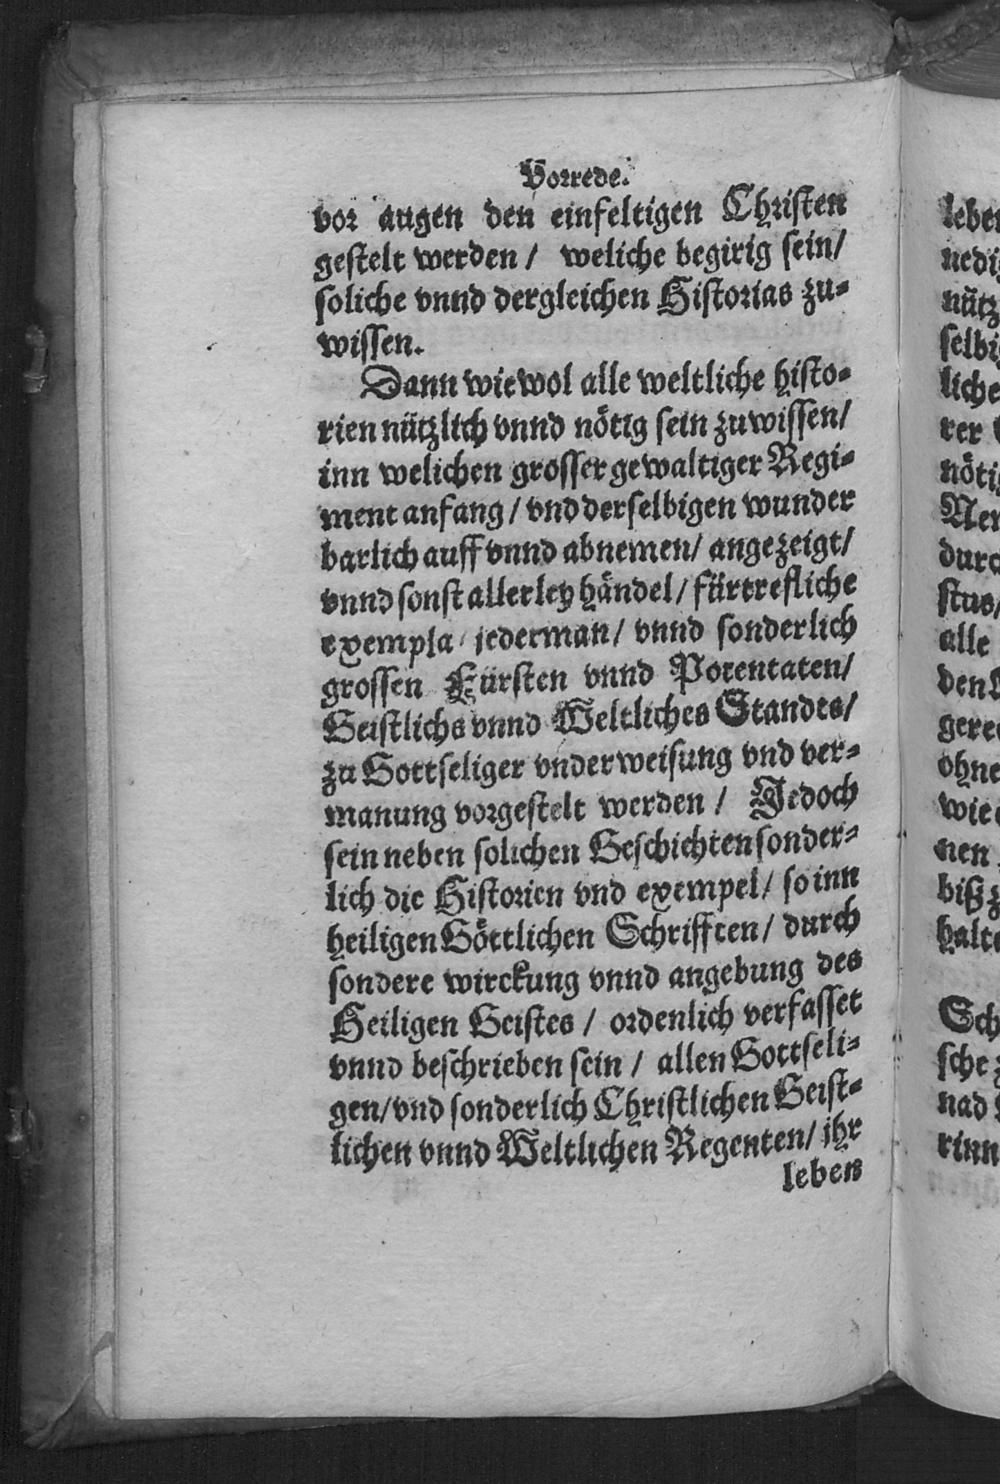 Vorrede.
vor augen den einfeltigen Christen
gestelt werden / weliche begirig sein/
soliche vnnd dergleichen Historias zu-
wissen.
Dann wiewol alle weltliche histo-
rien nützlich vnnd nötig sein zuwissen/
inn welichen grosser gewaltiger Regi-
ment anfang / vnd derselbigen wunder
barlich auff vnnd abnemen/ angezeigt/
vnnd sonst allerley händel / fürtrefliche
exempla / jederman / vnnd sonderlich
grossen Fürsten vnnd Potentaten/
Geistlichs vnnd Weltliches Standes/
zu Gottseliger vnderweisung vnd ver-
manung vorgestelt werden / Jedoch
sein neben solichen Geschichten sonder-
lich die Historien vnd exempel/ so inn
heiligen Göttlichen Schrifften/ durch
sondere wirckung vnnd angebung des
Heiligen Geistes / ordenlich verfasset
vnnd beschrieben sein / allen Gottseli-
gen/ vnd sonderlich Christlichen Geist-
lichen vnnd Weltlichen Regenten/ jhr
leben
leben
nedi
nütz
selbi
liche
rer
nöti
Nem
durc
stus/
alle
den
gerec
ohne
wie
nen
biß z
halte
Sch
sche
nad
rinn